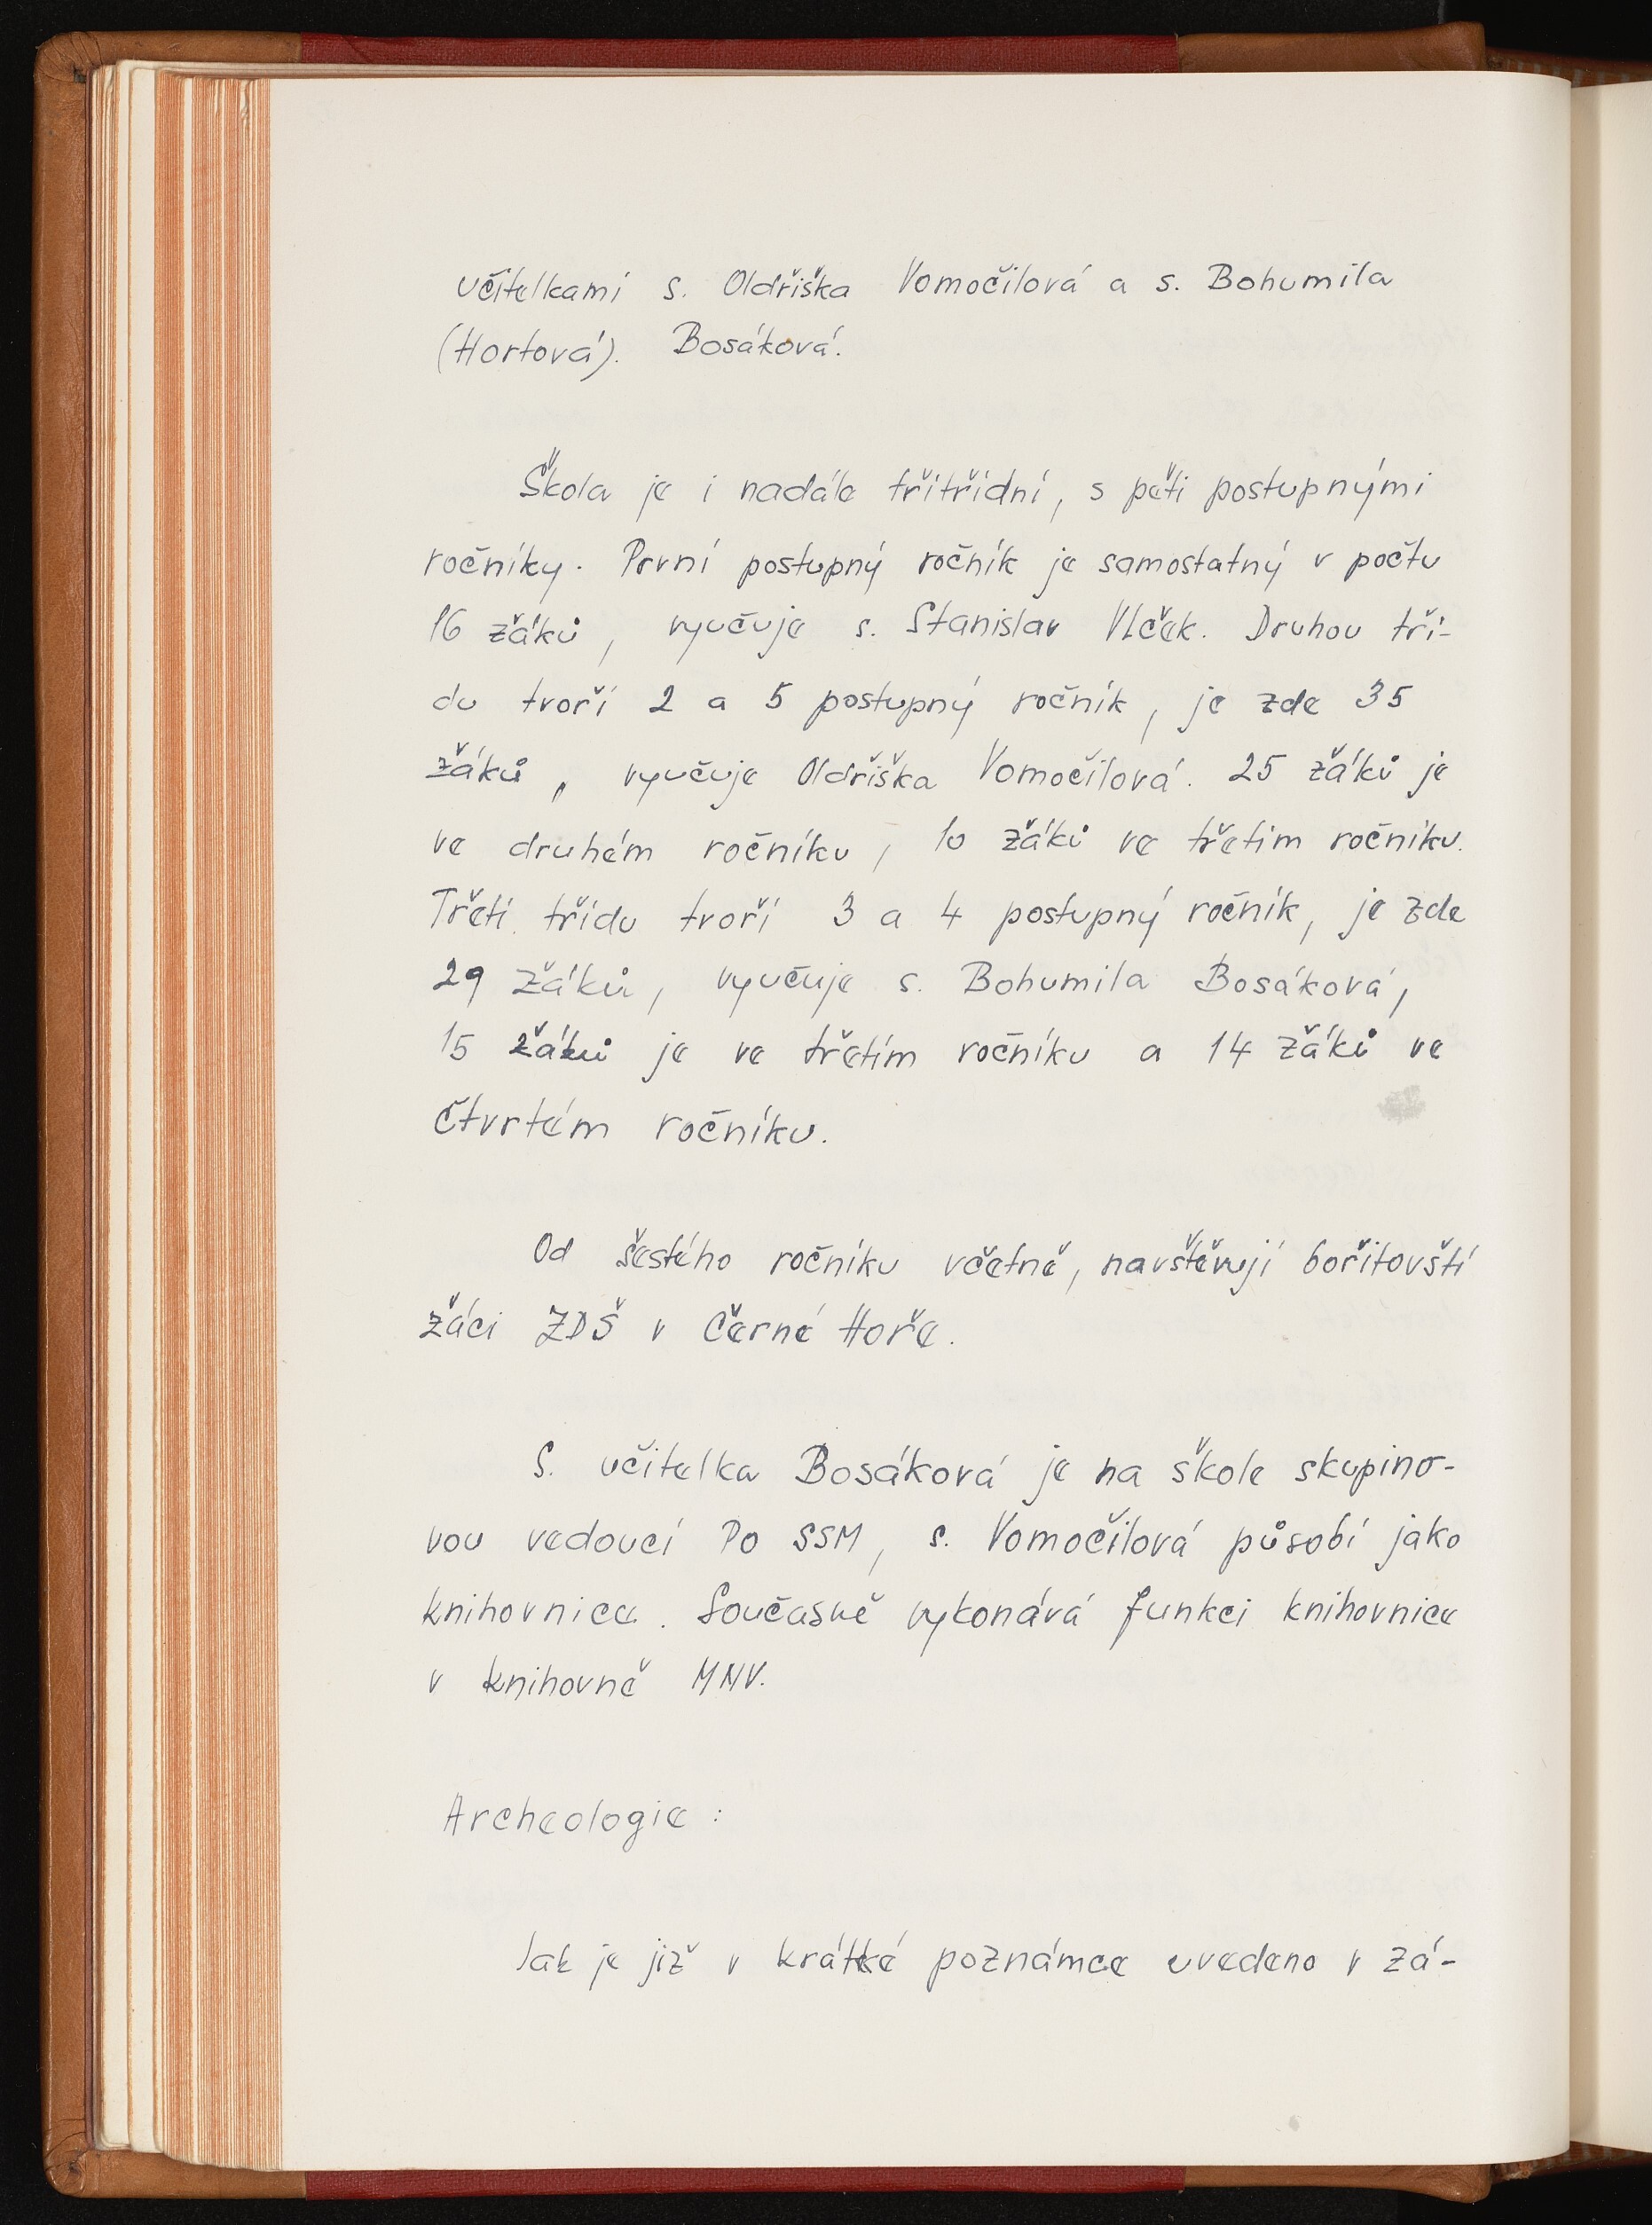 učitelkami s. Oldřiška Vomočilová a s. Bohumila
(Hortová). Bosáková.
Škola je i nadále třítřídní, s pěti postupnými
ročníky. První postupný ročník je samostatný v počtu
16 žáků, vyučuje s. Stanislav Vlček. Druhou tří-
du tvoří 2 a 5 postupný ročník, je zde 35
žáků, vyučuje Oldřiška Vomočilová. 25 žáků je
ve druhém ročníku, 10 žáků ve třetím ročníku.
Třetí třídu tvoří 3 a 4 postupný ročník, je zde
29 žáků, vyučuje s. Bohumila Bosáková,
15 žáků je ve třetím ročníku a 14 žáků ve
čtvrtém ročníku.
Od šestého ročníku včetně, navštěvují bořitovští
žáci ZDŠ v Černé Hoře.
S. učitelka Bosáková je na škole skupino-
vou vedoucí PO SSM, s. Vomočilová působí jako
knihovnice. Současně vykonává funkci knihovnice
v knihovně MNV.
Archeologie :
Jak je již v krátké poznámce uvedeno v zá-